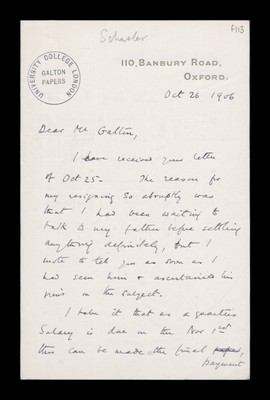 Schuster
f113
UNIVERSITY COLLEGE LONDON
GALTON
PAPERS
110, BANBURY ROAD,
OXFORD.
Oct 26 1906
Dear Mr Galton,
I have received your letter
of Oct 25. The reason for
my resigning so abruptly was
that I had been waiting to
talk to my father before settling
anything definitely, but I
wrote to tell you as soon as I
had seen him & ascertained his
views on the subject.
I take it that as a quarters
Salary is due on the Nov 1st
this can be made the final
payment